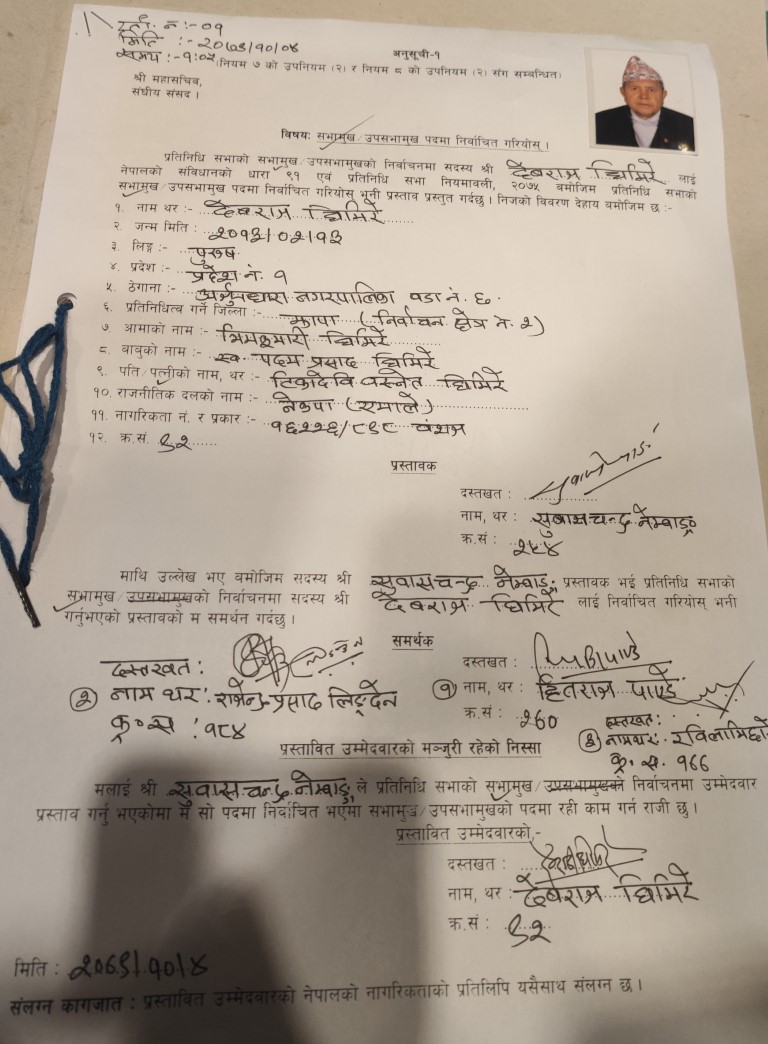 दर्ता नं :- ०१
मिति :- २०७९/१०/०४
समय :- १:०५
अनुसूची-१
(नियम ७ को उपनियम (२) र नियम ८ को उपनियम (२) संग सम्बन्धित)
श्री महासचिव,
संघीय संसद ।
विषय: सभामुख/उपसभामुख पदमा निर्वाचित गरियोस् ।
प्रतिनिधि सभाको सभामुख/उपसभामुखको निर्वाचनमा सदस्य श्री देवराज घिमिरे लाई
नेपालको संविधानको धारा ९१ एवं प्रतिनिधि सभा नियमावली, २०७५ बमोजिम प्रतिनिधि सभाको
सभामुख/उपसभामुख पदमा निर्वाचित गरियोस् भूनी प्रस्ताव प्रस्तुत गर्दछु । निजको विवरण देहाय बमोजिम छ :-
१. नाम थर :- देवराज घिमिरे
२. जन्म मिति : २०१३/०२/१३
३. लिङ्ग :- पुरुष
४. प्रदेश :- प्रदेश नं. १
५. ठेगाना :- अर्जुनधारा नगरपालिका वडा नं. ६
६. प्रतिनिधित्व गर्ने जिल्ला :- झापा (निर्वाचन क्षेत्र नं. २)
७. आमाको नाम :- भिमकुमारी घिमिरे
८. बाबुको नाम :- स्व. पदम प्रसाद घिमिरे
९. पति/पत्नीको नाम, थर :- टिकादेवि वस्नेत घिमिरे
१०. राजनीतिक दलको नाम :- नेकपा (एमाले)
११. नागरिकता नं. र प्रकार :- १६२२६/८९८ वंशज
१२. क्र.सं. ९२
प्रस्तावक
दस्तखत :
नाम, थर : सुवासचन्द्र नेम्वाङ्ग
क्र.सं : २५४
माथि उल्लेख भए बमोजिम सदस्य श्री सुवासचन्द्र नेम्वाङ्ग प्रस्तावक भई प्रतिनिधि सभाको
सभामुख/उपसभामुखको निर्वाचनमा सदस्य श्री देवराज घिमिरे लाई निर्वाचित गरियोस् भनी
गर्नुभएको प्रस्तावको म समर्थन गर्दछु ।
समर्थक
दस्तखत :
① नाम, थर : हितराज पाण्डे
क्र.सं : २६०
दस्तखत :
② नाम थर : राजेन्द्र प्रसाद लिङ्देन
क्र०स : १८४
दस्तखत:
③ नामथर: रवि लामिछाने
क्र. स. १७७
प्रस्तावित उम्मेदवारको मञ्जुरी रहेको निस्सा
मलाई श्री सुवासचन्द्र नेम्वाङ्ग ले प्रतिनिधि सभाको सभामुख/उपसभामुखको निर्वाचनमा उम्मेदवार
प्रस्ताव गर्नु भएकोमा म सो पदमा निर्वाचित भएमा सभामुख/उपसभामुखको पदमा रही काम गर्न राजी छु ।
प्रस्तावित उम्मेदवारको,-
दस्तखत :
नाम, थर : देवराज घिमिरे
क्र.सं : ९२
मिति : २०७९/१०/४
संलग्न कागजात : प्रस्तावित उम्मेदवारको नेपालको नागरिकताको प्रतिलिपि यसैसाथ संलग्न छ ।